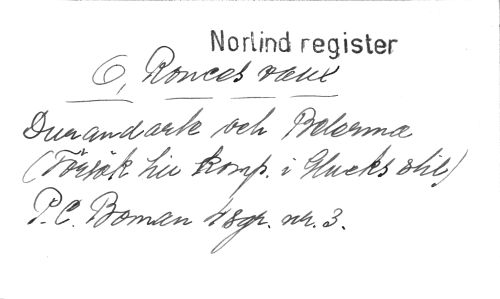 Norlind register
O, Ronces vaux
Durandarte och Belerma
(Försök till komp. i Glucks stil)
P.C. Boman 48gr. nr. 3.